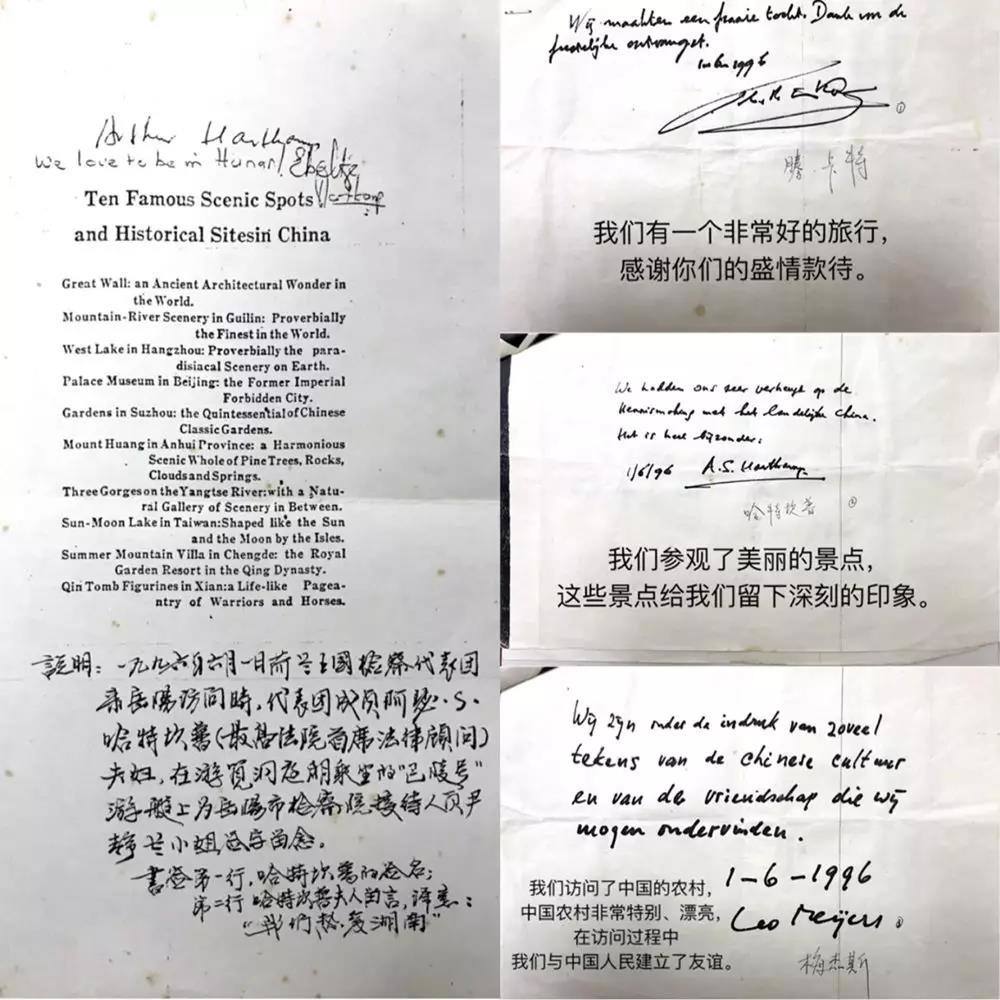 Arthur Hartkamp
We love to be in Hunan! Eheltje
Hartkamp
Ten Famous Scenic Spots
and Historical Sitesin China
Great Wall: an Ancient Architectural Wonder in
the World.
Mountain-River Scenery in Guilin: Proverbially
the Finest in the World.
West Lake in Hangzhou: Proverbially the para-
disiacal Scenery on Earth.
Palace Museum in Beijing: the Former Imperial
Forbidden City.
Gardens in Suzhou: the Quintessential of Chinese
Classic Gardens.
Mount Huang in Anhui Province: a Harmonious
Scenic Whole of Pine Trees, Rocks,
Clouds and Springs.
Three Gorges on the Yangtse River: with a Natu-
ral Gallery of Scenery in Between.
Sun-Moon Lake in Taiwan:Shaped like the Sun
and the Moon by the Isles.
Summer Mountain Villa in Chengde: the Royal
Garden Resort in the Qing Dynasty.
Qin Tomb Figurines in Xian:a Life-like Pagea-
ntry of Warriors and Horses.
説明：一九九六年六月一日荷兰王國檢察代表团
来岳陽访问時，代表团成员阿瑟·S·
哈特坎普(最高法院首席法律顧问)
夫妇，在游览洞庭湖乘坐的"巴陵号"
游艇上为岳陽市检察院接待人员尹
静兰小姐签字留念。
書签第一行，哈特坎普的签名；
第二行哈特坎普夫人留言，译意：
"我们热爱湖南"
Wij maakten een fraaie tocht. Dank voor de
feestelijke ontvangst.
1 juni 1996
①
滕·卡特
我们有一个非常好的旅行，
感谢你们的盛情款待。
We hadden ons zeer verheugd op de
kennismaking met het landelijke China.
Het is heel bijzonder.
1/6/96 A.S. Hartkamp
哈特坎普 ②
我们参观了美丽的景点，
这些景点给我们留下深刻的印象。
Wij zijn onder de indruk van zoveel
tekens van de chinese cultuur
en van de vriendschap die wij
mogen ondervinden.
1-6-1996
Leo Meijers ③
梅杰斯
我们访问了中国的农村，
中国农村非常特别、漂亮，
在访问过程中
我们与中国人民建立了友谊。